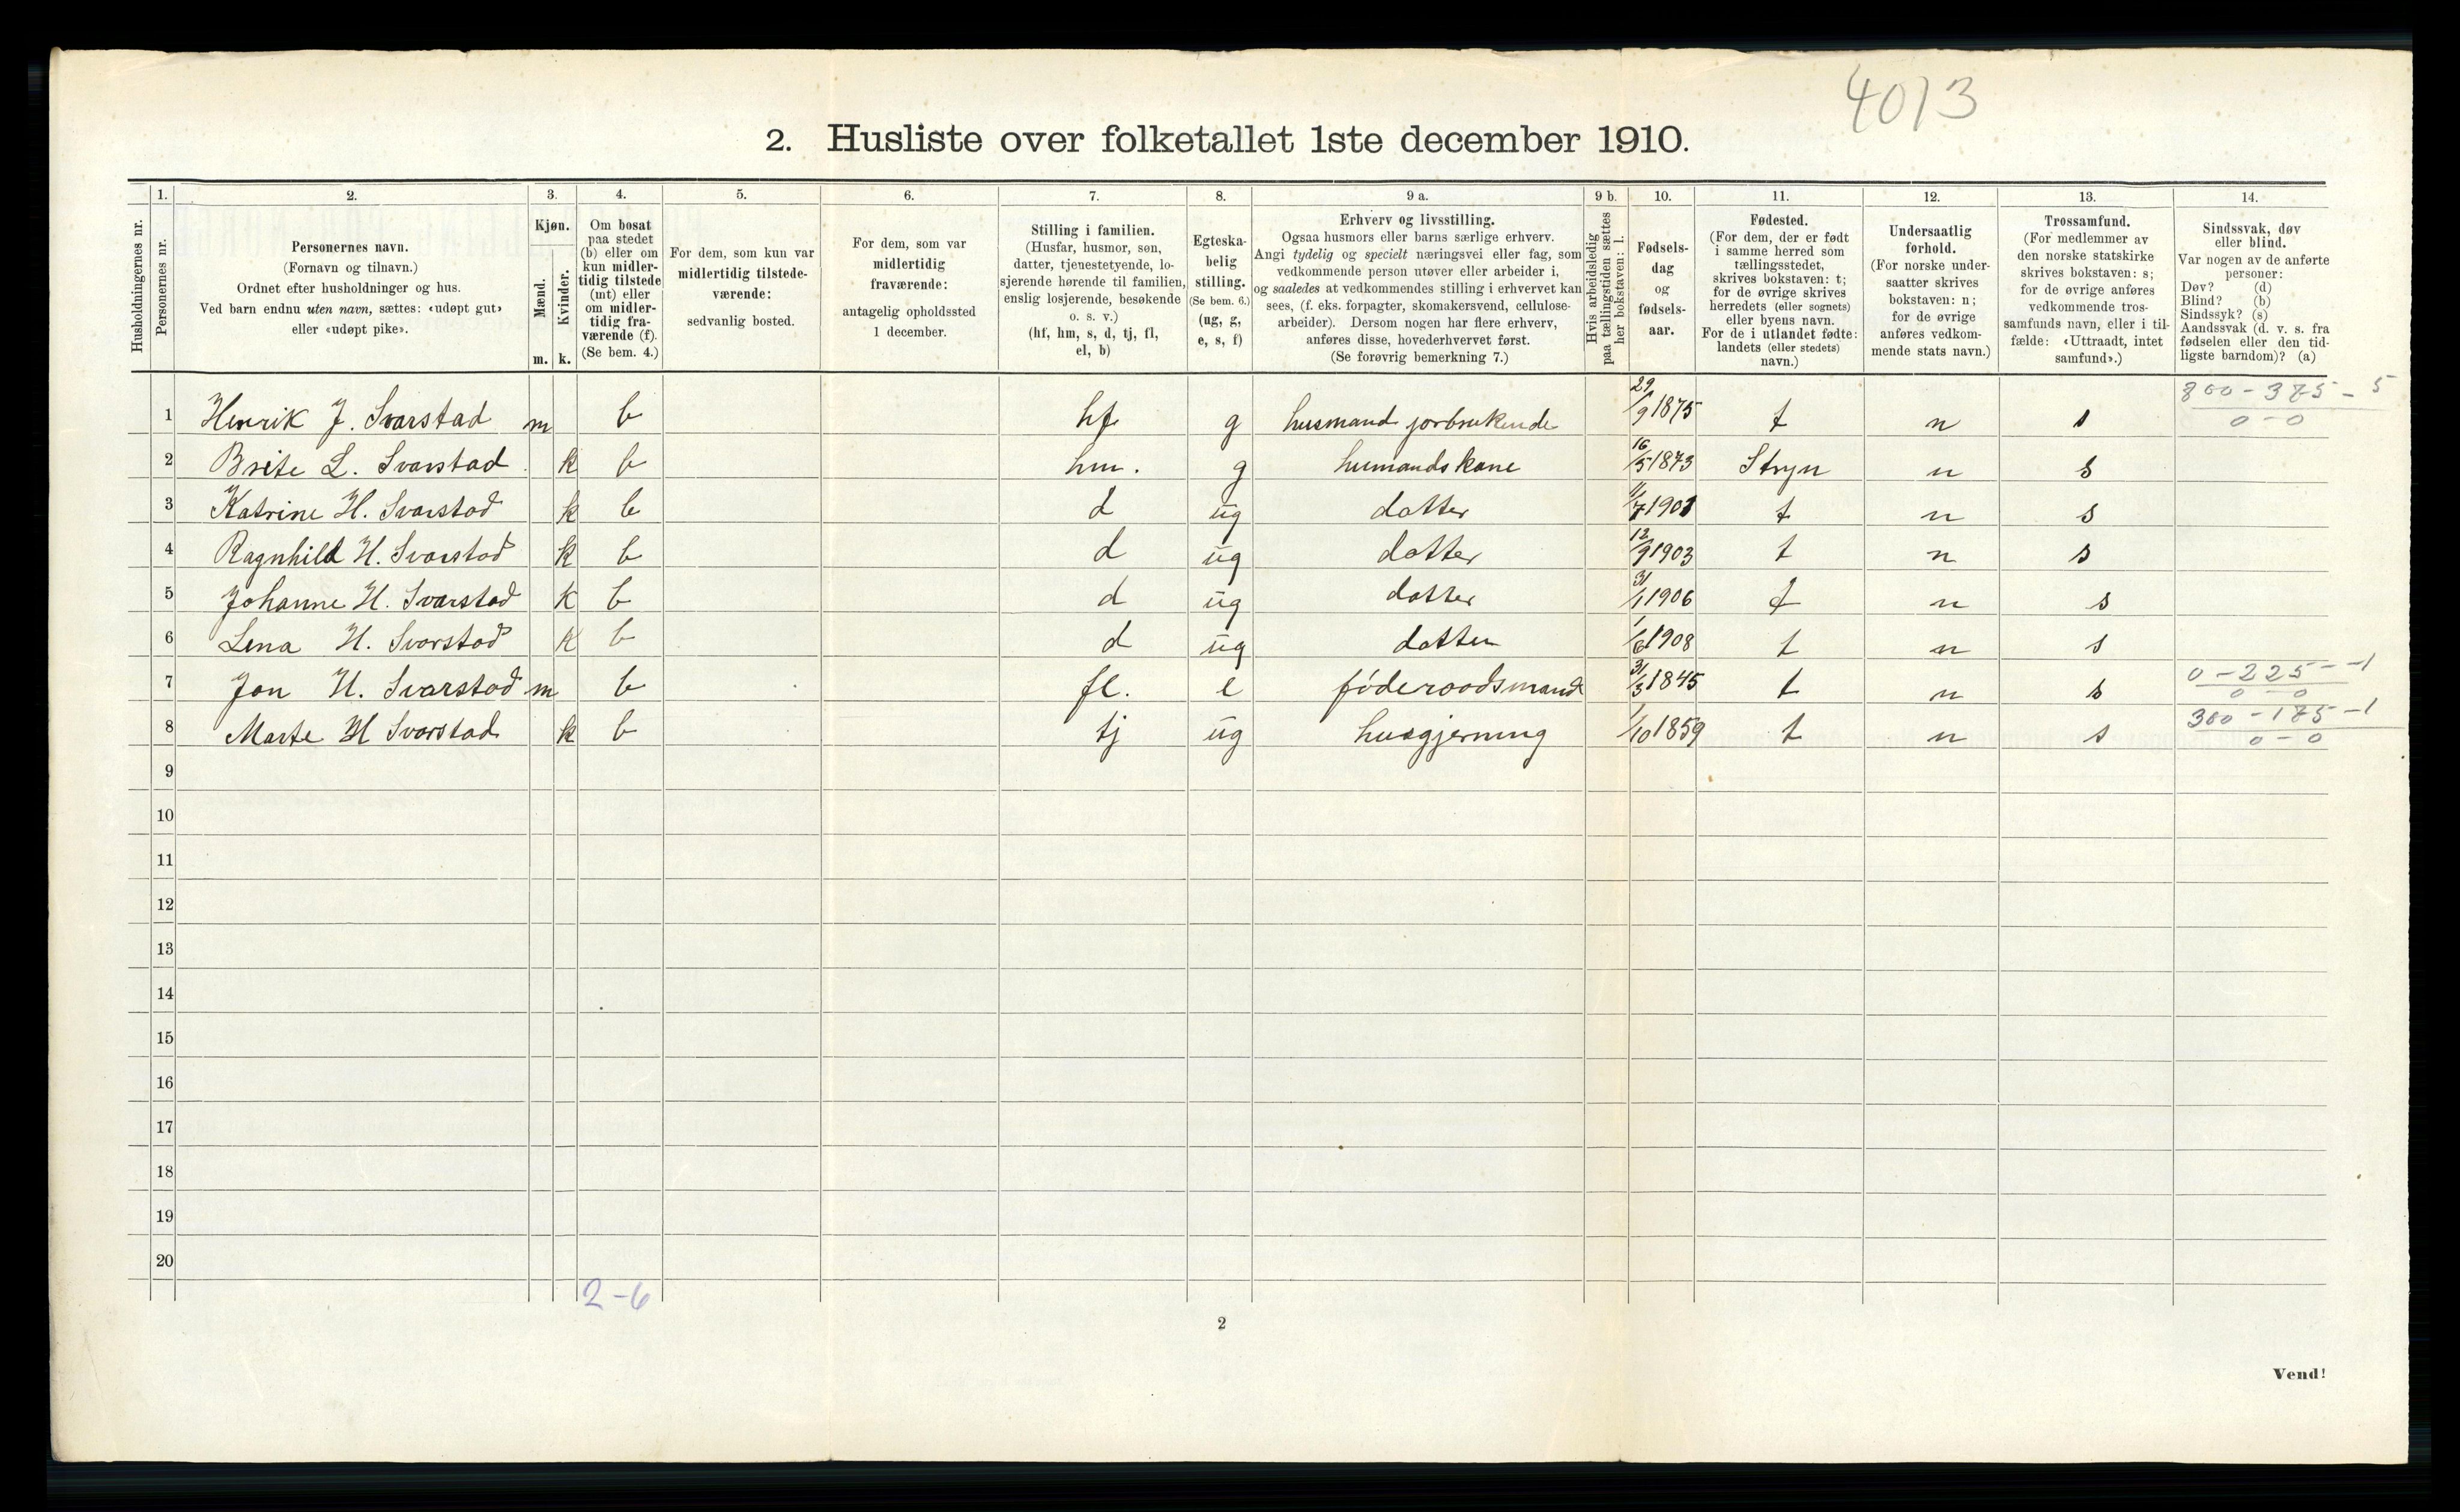 4013
2. Husliste over folketallet 1ste december 1910.
1. 2. 3. 4. 5. 6. 7. 8. 9 a. 9 b. 10. 11. 12. 13. 14.
Husholdningernes nr.
Personernes nr.
Personernes navn.
(Fornavn og tilnavn.)
Ordnet efter husholdninger og hus.
Ved barn endnu uten navn, sættes: «udøpt gut»
eller «udøpt pike».
Kjøn.
Mænd.
Kvinder.
m. k.
Om bosat
paa stedet
(b) eller om
kun midler-
tidig tilstede
(mt) eller
om midler-
tidig fra-
værende (f).
(Se bem. 4.)
For dem, som kun var
midlertidig tilstede-
værende:
sedvanlig bosted.
For dem, som var
midlertidig
fraværende:
antagelig opholdssted
1 december.
Stilling i familien.
(Husfar, husmor, søn,
datter, tjenestetyende, lo-
sjerende hørende til familien,
enslig losjerende, besøkende
o. s. v.)
(hf, hm, s, d, tj, fl,
el, b)
Egteska-
belig
stilling.
(Se bem. 6.)
(ug, g,
e, s, f)
Erhverv og livsstilling.
Ogsaa husmors eller barns særlige erhverv.
Angi tydelig og specielt næringsvei eller fag, som
vedkommende person utøver eller arbeider i,
og saaledes at vedkommendes stilling i erhvervet kan
sees, (f. eks. forpagter, skomakersvend, cellulose-
arbeider). Dersom nogen har flere erhverv,
anføres disse, hovederhvervet først.
(Se forøvrig bemerkning 7.)
Hvis arbeidsledig
paa tællingstiden sættes
her bokstaven: l.
Fødsels-
dag
og
fødsels-
aar.
Fødested.
(For dem, der er født
i samme herred som
tællingsstedet,
skrives bokstaven: t;
for de øvrige skrives
herredets (eller sognets)
eller byens navn.
For de i utlandet fødte:
landets (eller stedets)
navn.)
Undersaatlig
forhold.
(For norske under-
saatter skrives
bokstaven: n;
for de øvrige
anføres vedkom-
mende stats navn.)
Trossamfund.
(For medlemmer av
den norske statskirke
skrives bokstaven: s;
for de øvrige anføres
vedkommende tros-
samfunds navn, eller i til-
fælde: «Uttraadt, intet
samfund».)
Sindssvak, døv
eller blind.
Var nogen av de anførte
personer:
Døv? (d)
Blind? (b)
Sindssyk? (s)
Aandssvak (d. v. s. fra
fødselen eller den tid-
ligste barndom)? (a)
1 Henrik J. Svarstad m b hf g husmand jorbrukende 29/9 1875 t n s 800-375-5 0-0
2 Brite L. Svarstad k b hm. g humandskone 16/5 1873 Stryn n s
3 Katrine H. Svarstad k b d ug datter 11/7 1901 t n s
4 Ragnhild H. Svarstad k b d ug datter 12/9 1903 t n s
5 Johanne H. Svarstad k b d ug datter 31/1 1906 t n s
6 Lena H. Svarstad k b d ug datter 1/6 1908 t n s
7 Jon H. Svarstad m b fl. e føderaadsmand 31/3 1845 t n s 0-225-1 0-0
8 Marte H Svarstad k b tj ug husgjerning 1/10 1859 t n s 300-175-1 0-0
9
10
11
12
13
14
15
16
17
18
19
20
2-6
2
Vend!